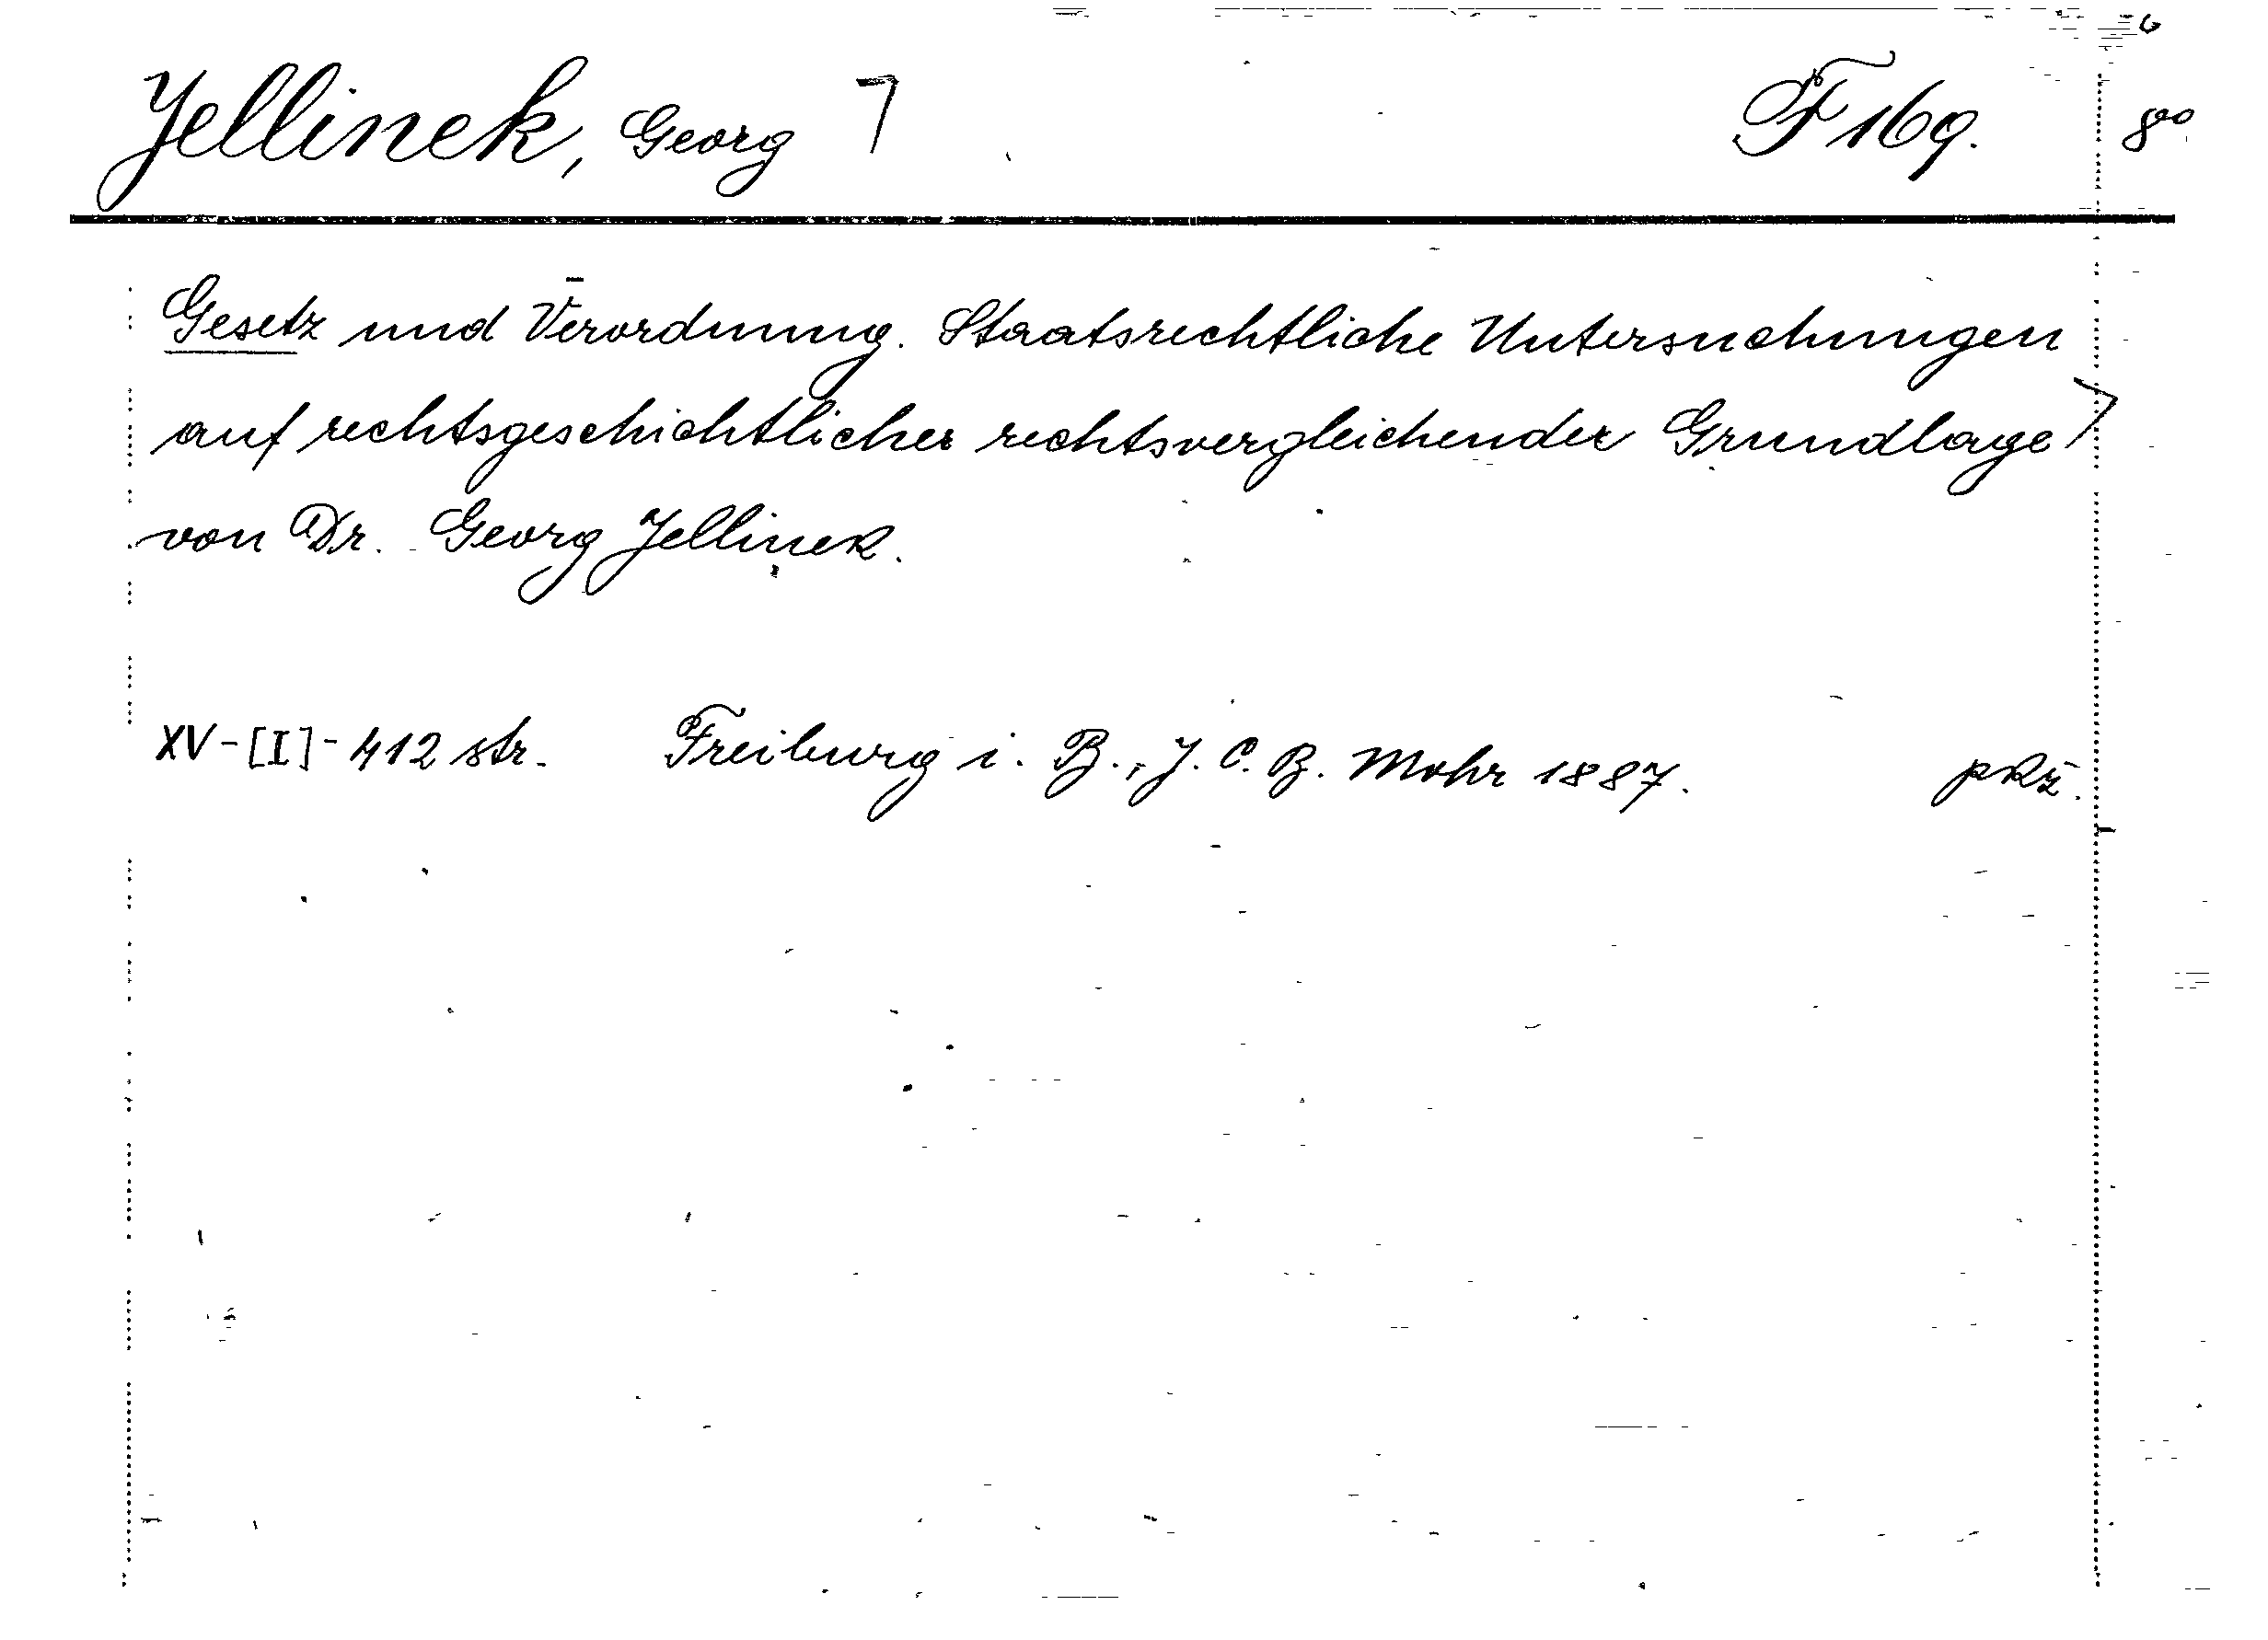 Jellinek, Georg F 169. 8°°
Gesetz und Verordnung. Staatsrechtliche Untersuchungen
auf rechtsgeschichtlicher rechtsvergleichender Grundlage
von Dr. Georg Jellinek.
XV-[I]-412 str. Freiburg i. B., J. C. B. Mohr 1887. pkž.